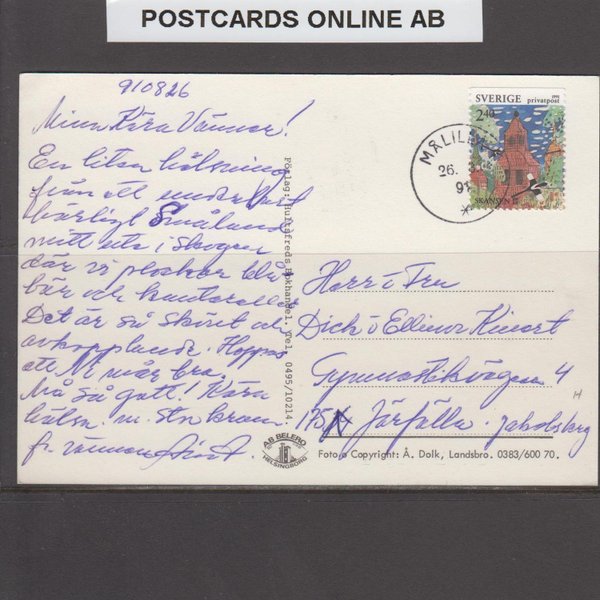 POSTCARDS ONLINE AB
910826
Mina Kära Vänner!
En liten hälsning
från ett underbart
härligt Småland
mitt ute i skogen
där vi plockar blå
bär och kantareller
Det är så skönt och
avkopplande. Hoppas
att Ni mår bra.
Må så gott! Kära
hälsn. m. stor kram
fr. vännen
Förlag: Hultsfreds Bokhandel. Tel. 0495/10214.
SVERIGE 1991
privatpost
2.40
SKANSEN
MÅLILLA
26. 8.
91
Herr o Fru
Dick o Ellinor
Gymnastikvägen 4
175 Järfälla - Jakobsberg
H
AB BELERO
HELSINGBORG
Foto o Copyright: Å. Dolk, Landsbro. 0383/600 70.